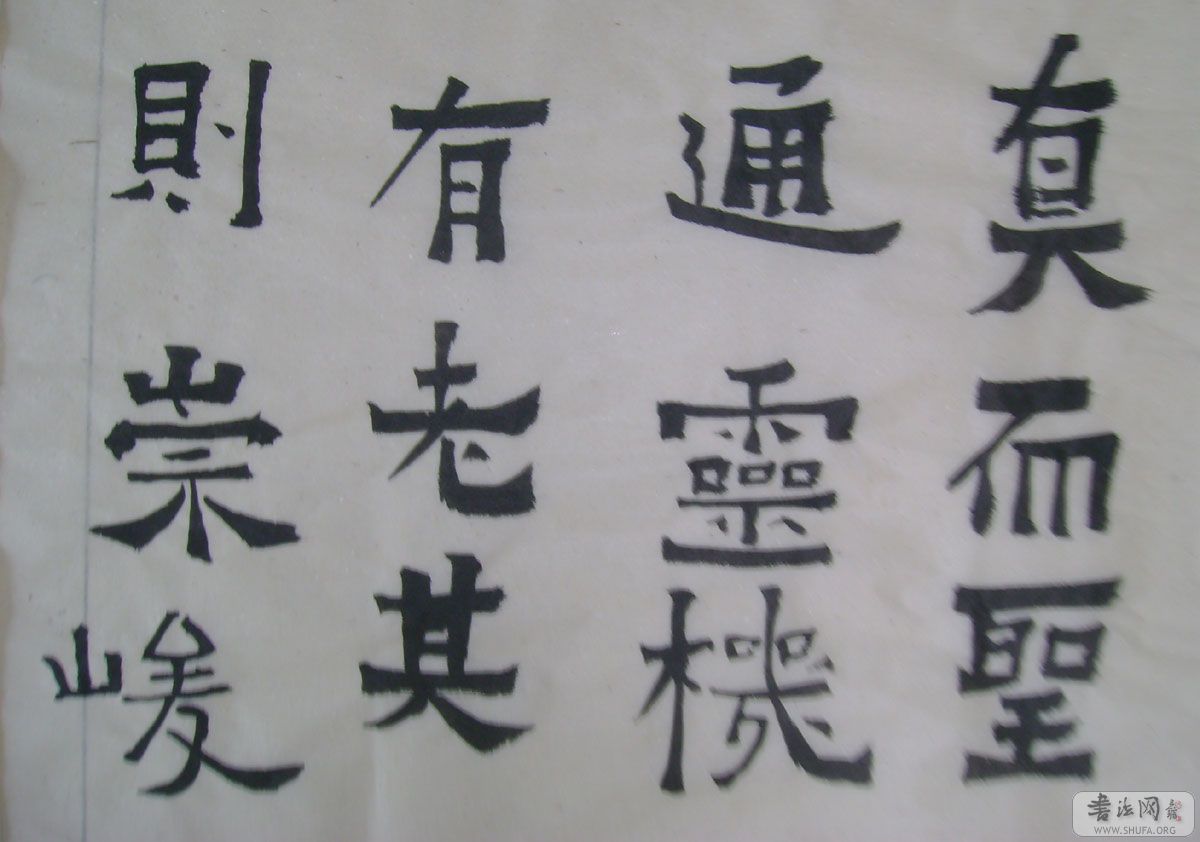 真而聖
通靈機
有老其
則崇峻
書法网
WWW.SHUFA.ORG